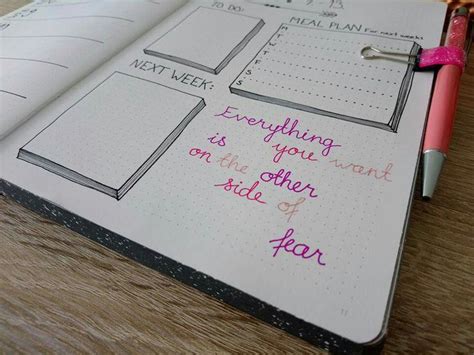 TO DO:
MEAL PLAN For next week
M
T
W
T
F
S
S
NEXT WEEK:
Everything
you want
is
on the other
side of
fear